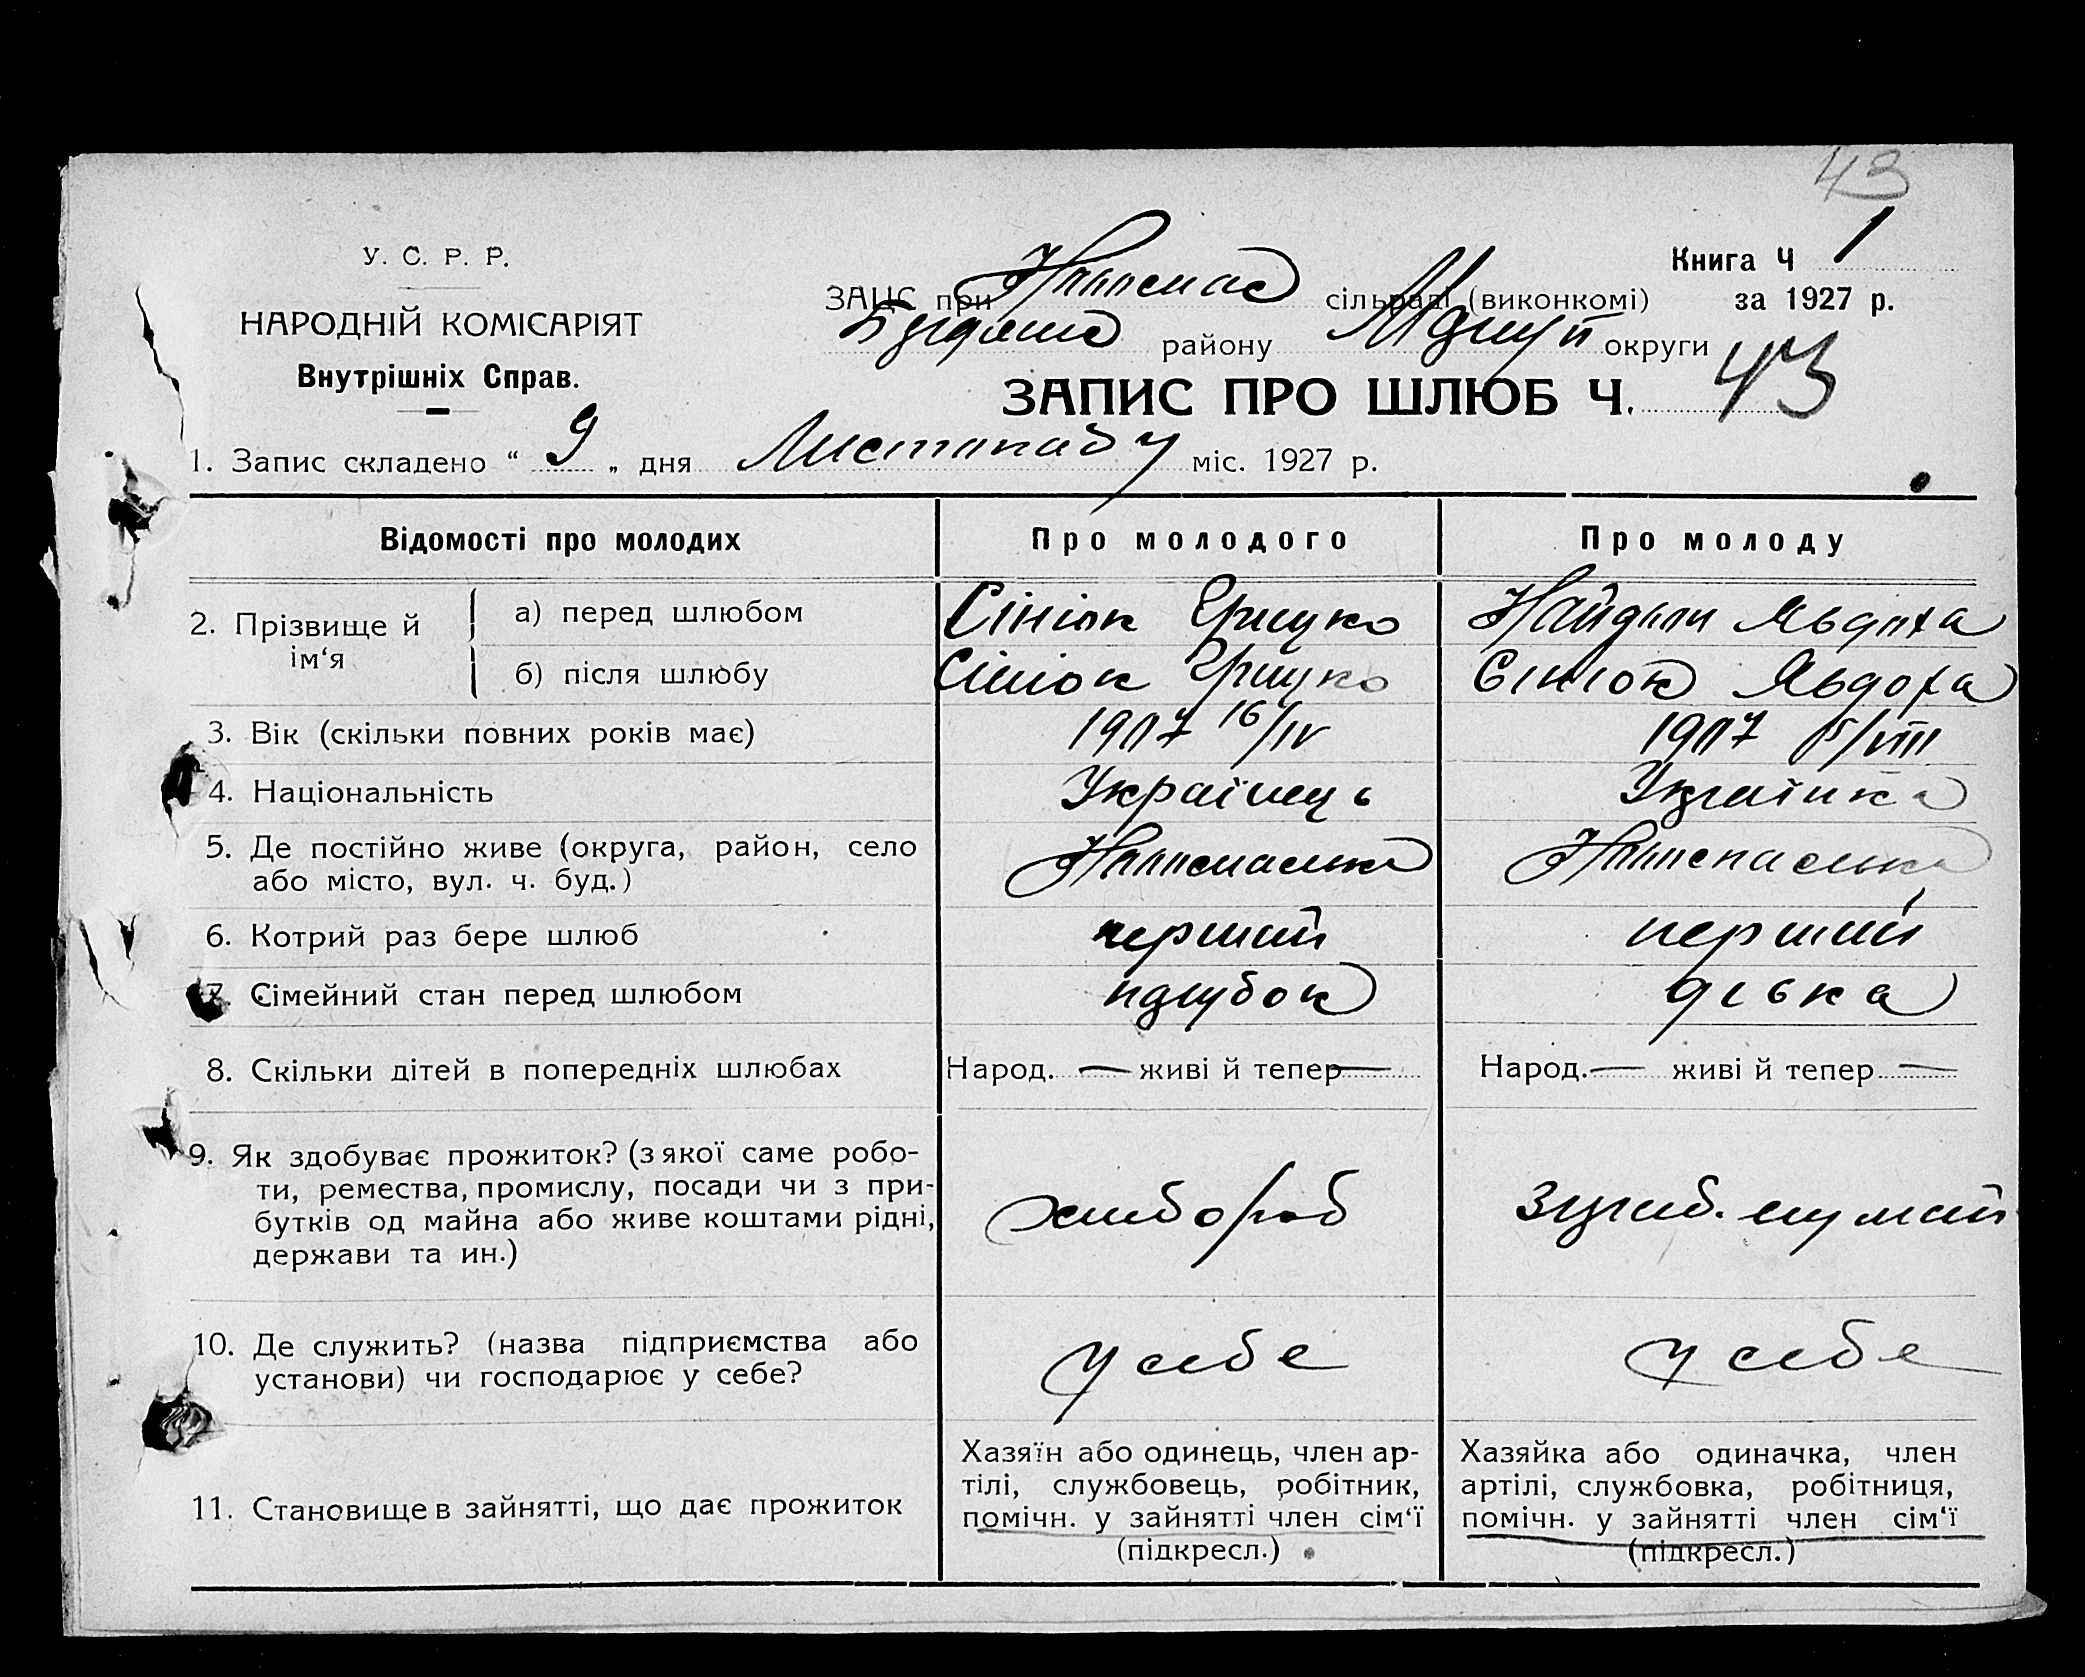 43
У. С. Р. Р.
НАРОДНІЙ КОМІСАРІЯТ
Внутрішніх Справ.
Книга Ч 1
за 1927 р.
ЗАЦС при сільраді (виконкомі)
району округи
ЗАПИС ПРО ШЛЮБ Ч. 43
1. Запис складено “ 9 „ дня Листопаду міс. 1927 р.
Відомості про молодих
Про молодого
Про молоду
2. Прізвище й ім‘я
а) перед шлюбом
Сінюк Грицько
Явдоха
б) після шлюбу
Сінюк Грицько
Сінюк Явдоха
3. Вік (скільки повних років має)
1907 16/IV
1907 5/VIII
4. Національність
Українець
Українка
5. Де постійно живе (округа, район, село
або місто, вул. ч. буд.)
6. Котрий раз бере шлюб
перший
перший
7. Сімейний стан перед шлюбом
парубок
дівка
8. Скільки дітей в попередніх шлюбах
Народ. — живі й тепер —
Народ. — живі й тепер —
9. Як здобуває прожиток? (з якої саме робо-
ти, ремества, промислу, посади чи з при-
бутків од майна або живе коштами рідні,
держави та ин.)
хлібороб
10. Де служить? (назва підприємства або
установи) чи господарює у себе?
у себе
у себе
11. Становище в зайнятті, що дає прожиток
Хазяїн або одинець, член ар-
тілі, службовець, робітник,
помічн. у зайнятті член сім‘ї
(підкресл.)
Хазяйка або одиначка, член
артілі, службовка, робітниця,
помічн. у зайнятті член сім‘ї
(підкресл.)